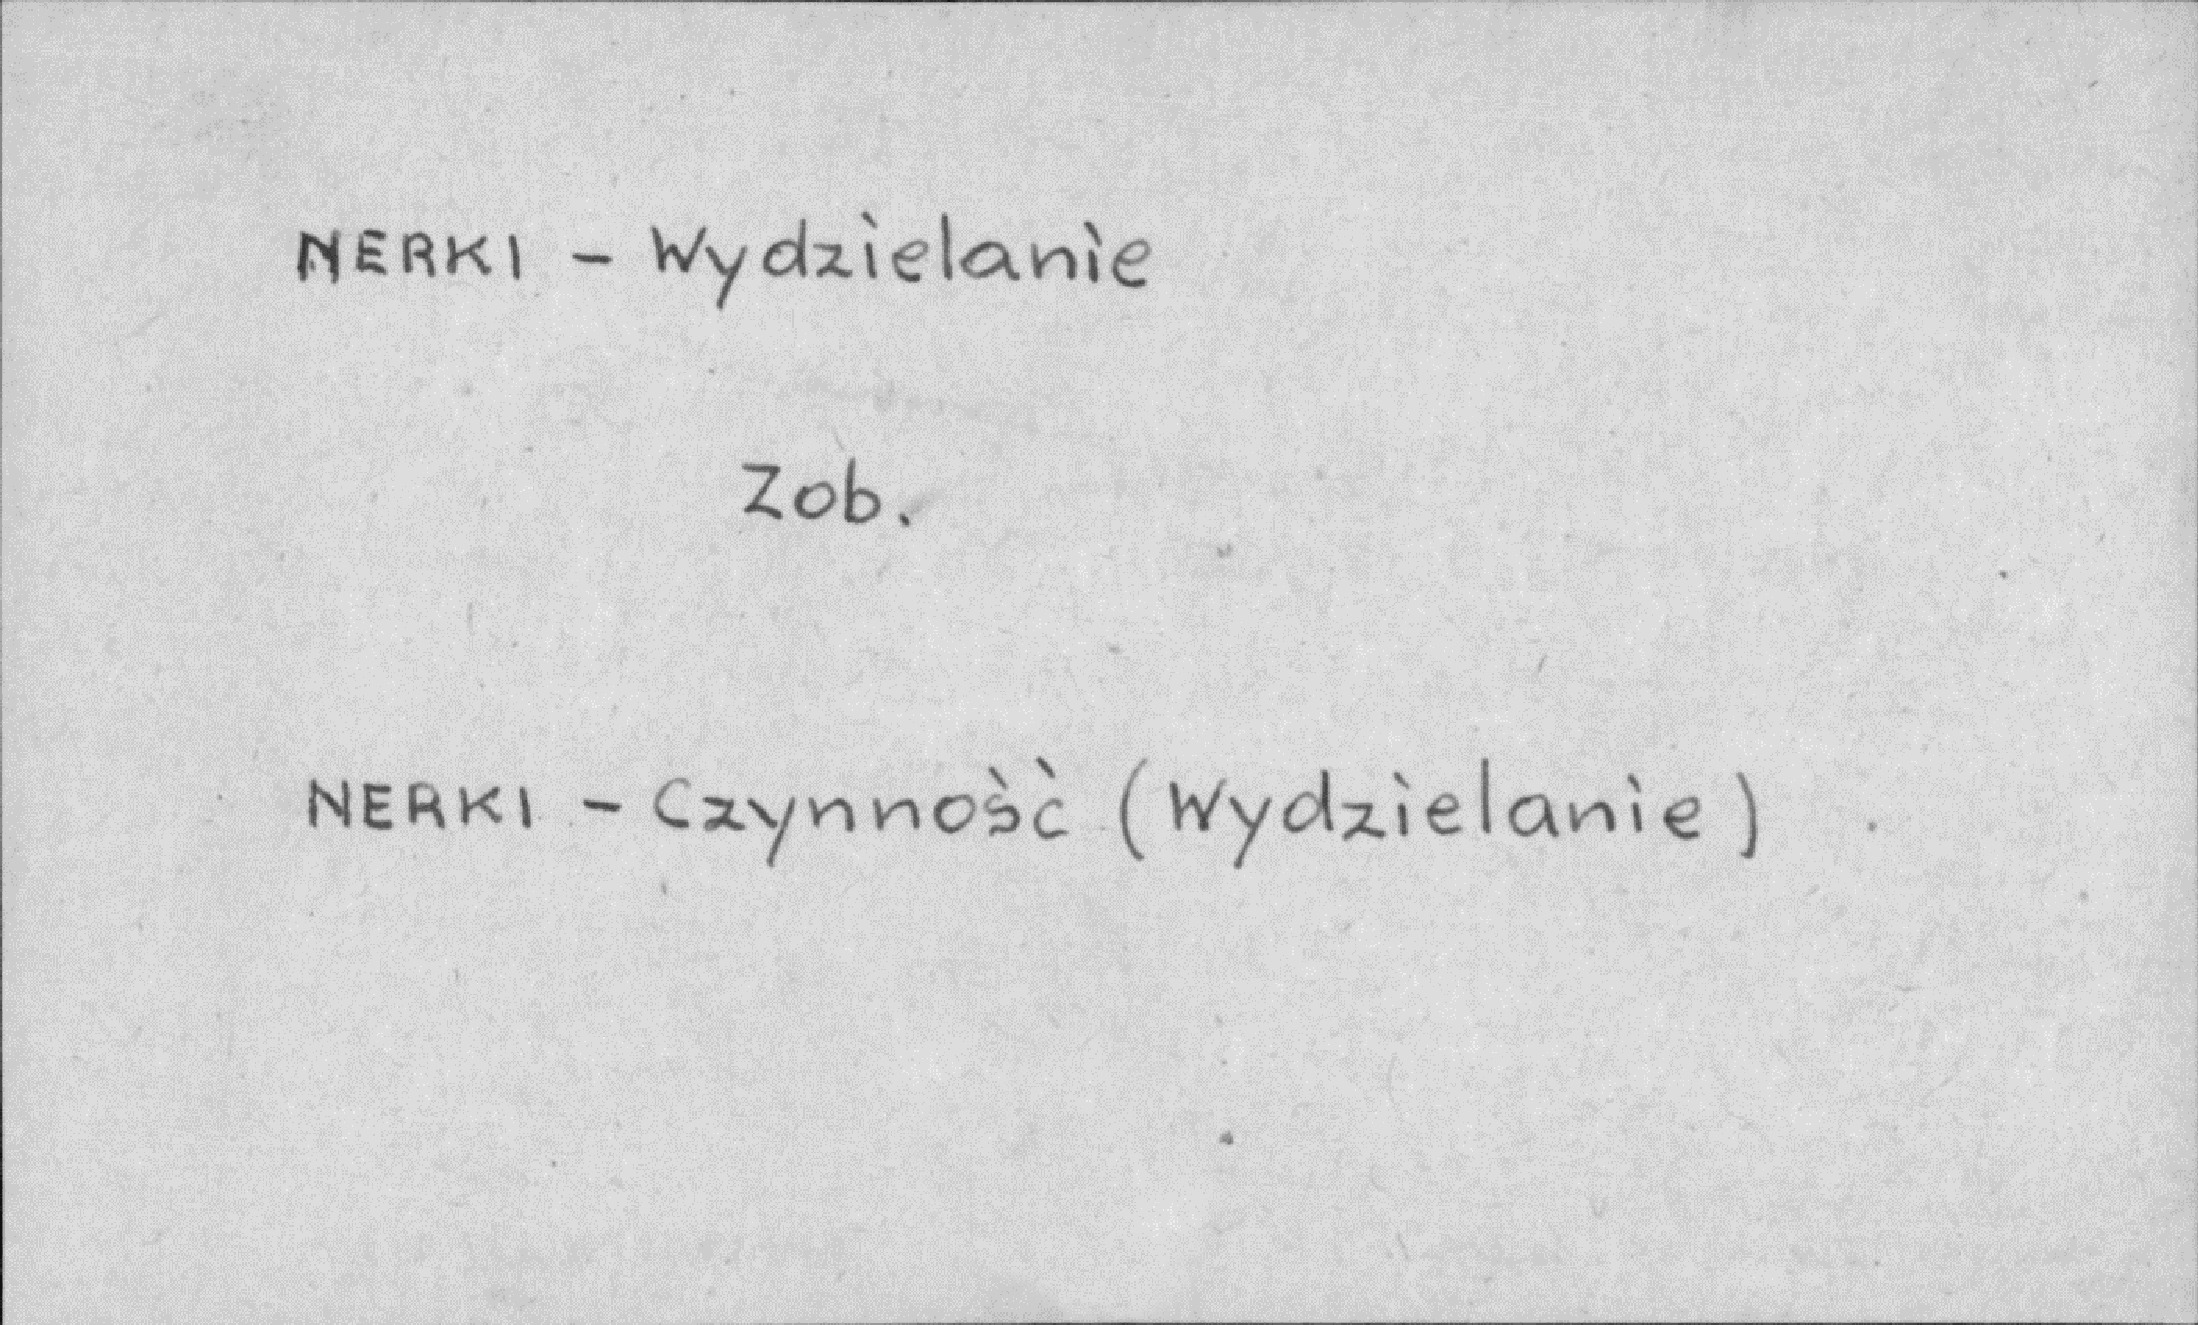 NERKI - Wydzielanie
Zob.
NERKI - Czynność (Wydzielanie)